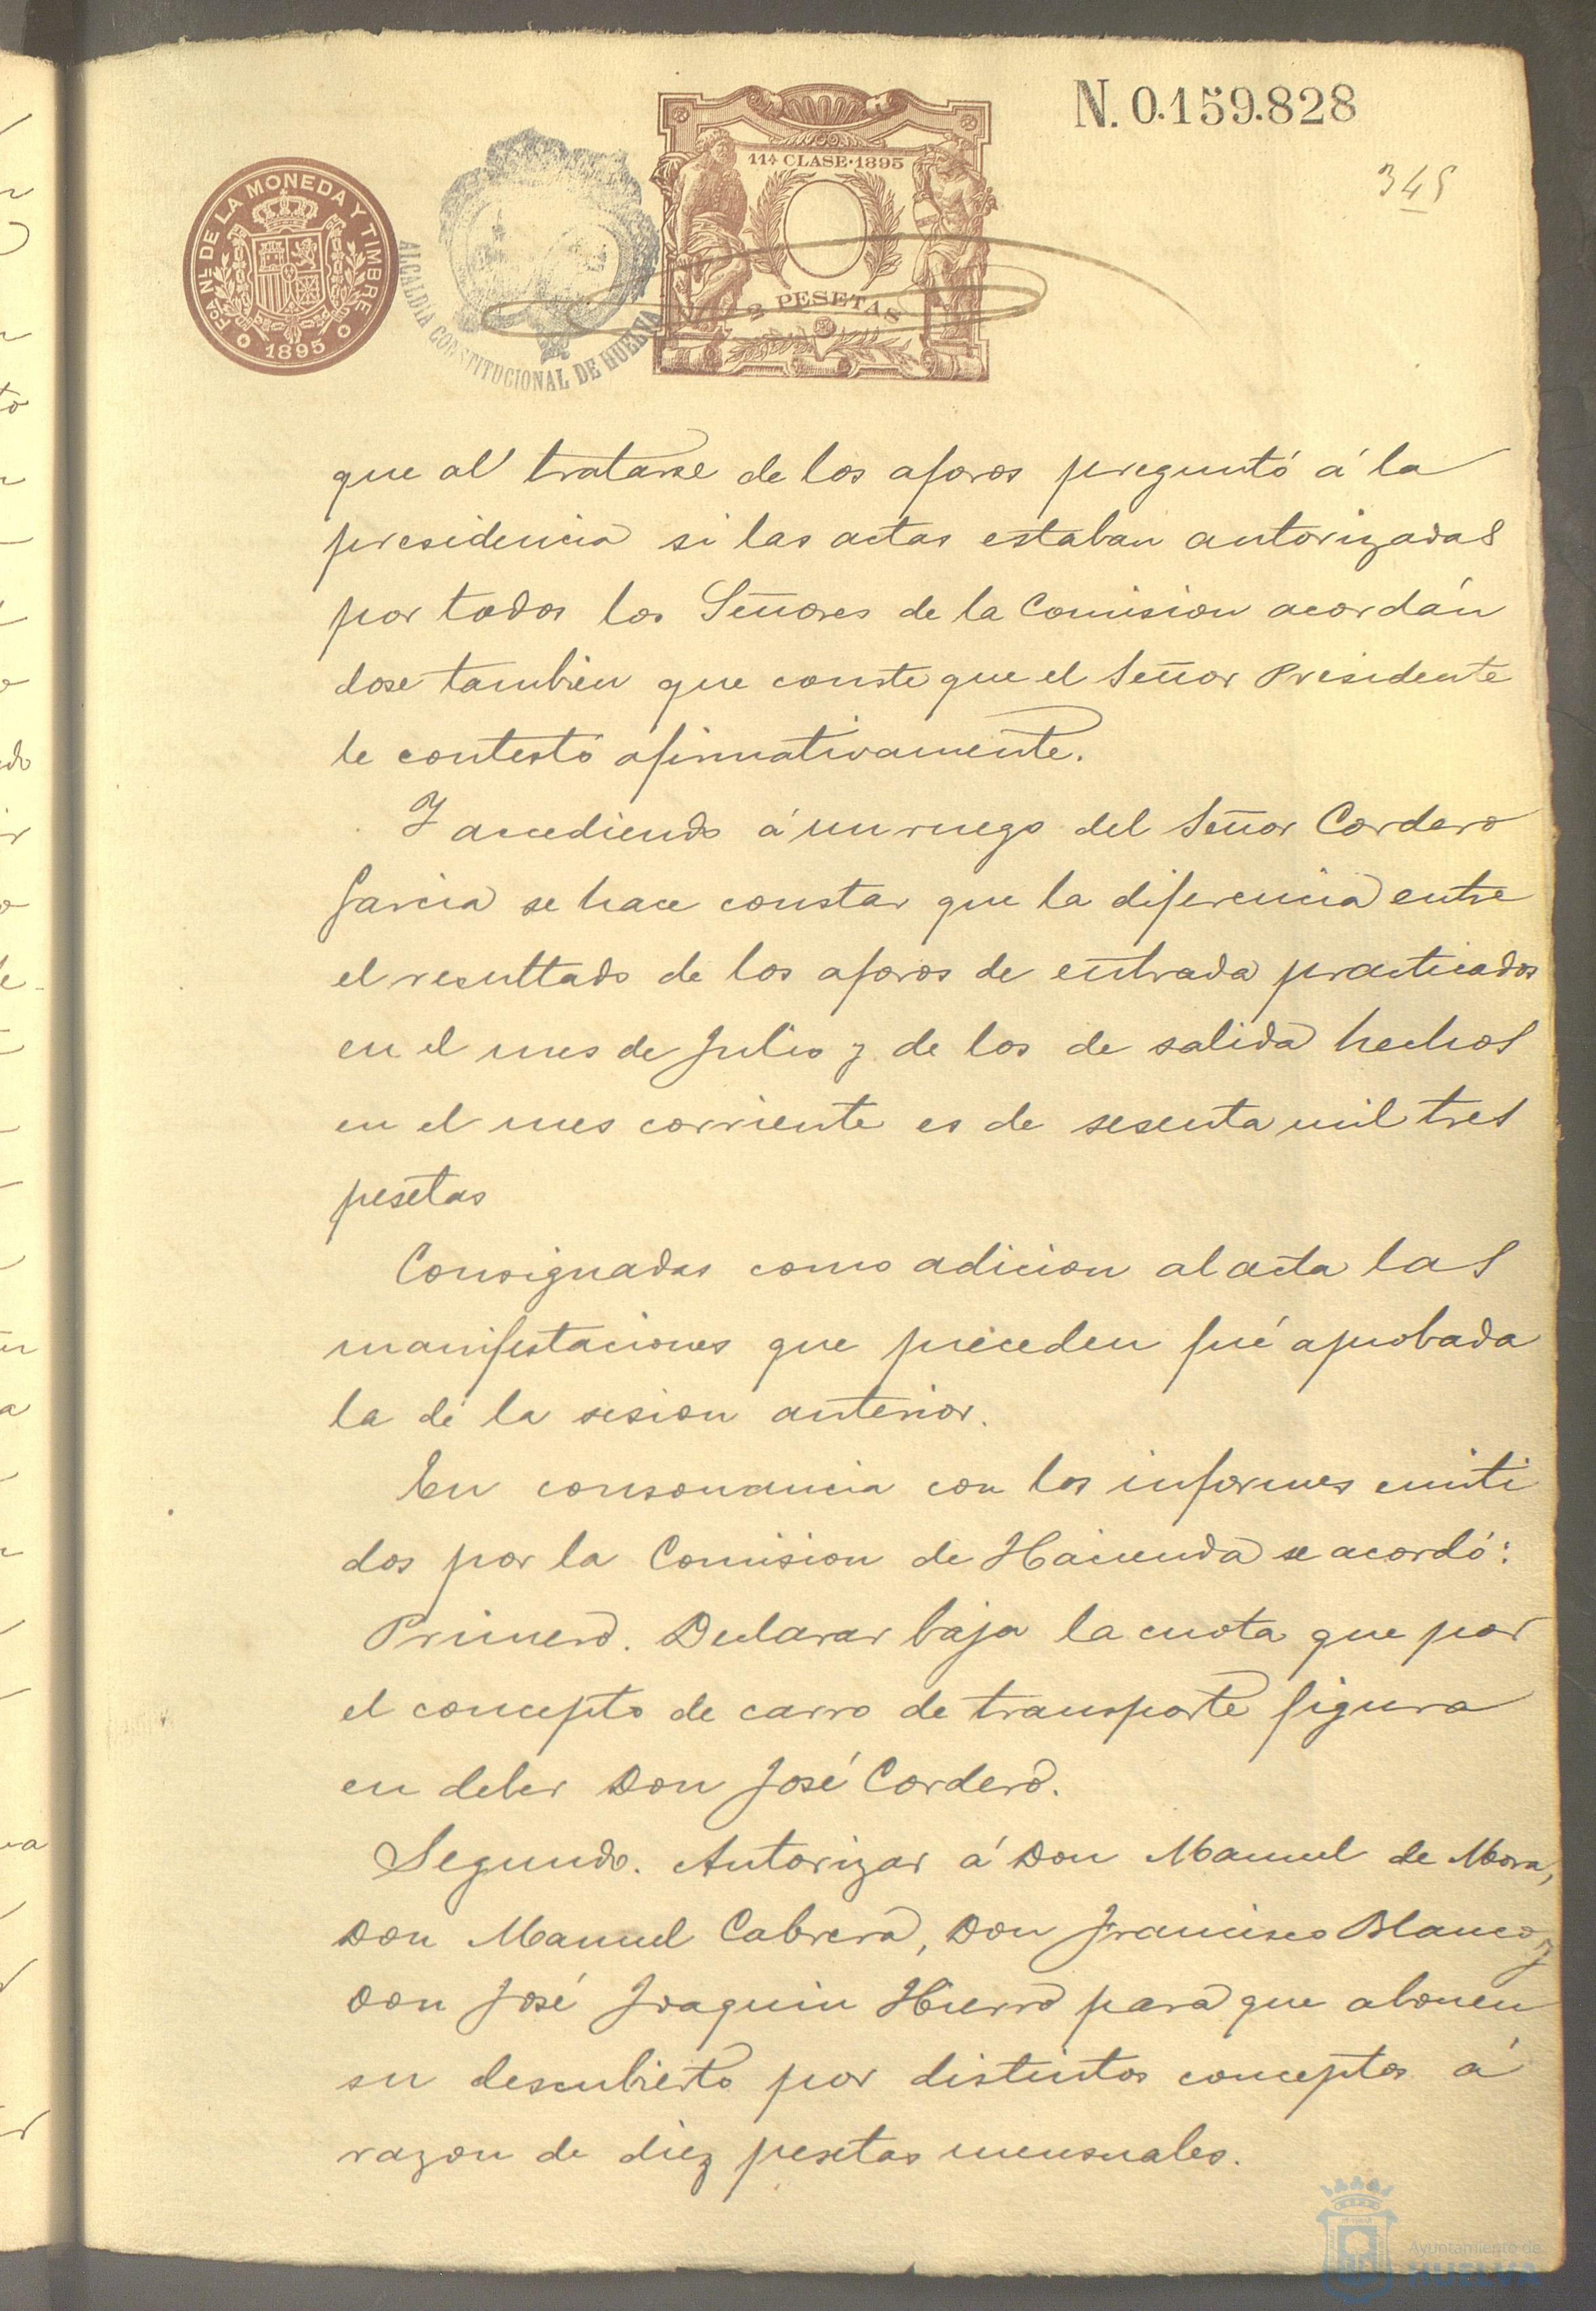 N. 0.159.828
345
11ª CLASE·1895
2 PESETAS
Fca. Nl. DE LA MONEDA Y TIMBRE
1895
ALCALDÍA CONSTITUCIONAL DE HUELVA
que al tratarse de los aforos preguntó á la
presidencia si las actas estaban autorizadas
por todos los Señores de la Comision acordán
dose tambien que conste que el Señor Presidente
le contestó afirmativamente.
Y accediendo á un ruego del Señor Cordero
Garcia se hace constar que la diferencia entre
el resultado de los aforos de entrada practicados
en el mes de Julio y de los de salida hechos
en el mes corriente es de sesenta mil tres
pesetas
Consignadas como adicion al acta las
manifestaciones que preceden fué aprobada
la de la sesion anterior.
En consonancia con los informes emiti
dos por la Comision de Hacienda se acordó:
Primero. Declarar baja la cuota que por
el concepto de carro de transporte figura
en deber Don José Cordero.
Segundo. Autorizar á Don Manuel de Mora,
Don Manuel Cabrera, Don Francisco Blanco y
Don José Joaquin Hierro para que abonen
su descubierto por distintos conceptos á
razon de diez pesetas mensuales.
Ayuntamiento de
HUELVA